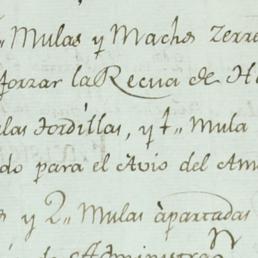 Mulas y Machos Zerre
forzar la Recua de H
las tordillas, y 1„ Mula
do para el Avio del Am
s y 2„ Mulas àpartadas